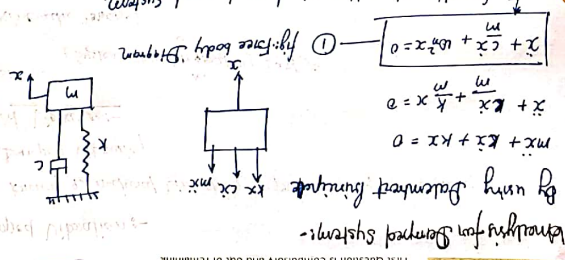 Analysis for Damped System:-
By using Dalembert Principle
mẍ + kẋ + kx = 0
ẍ + kẋ/m + k/m x = 0
ẍ + c/m ẋ + ωn²x = 0 — ①
kx cẋ mẍ
x
fig: Free body Diagram
K
C
m
x